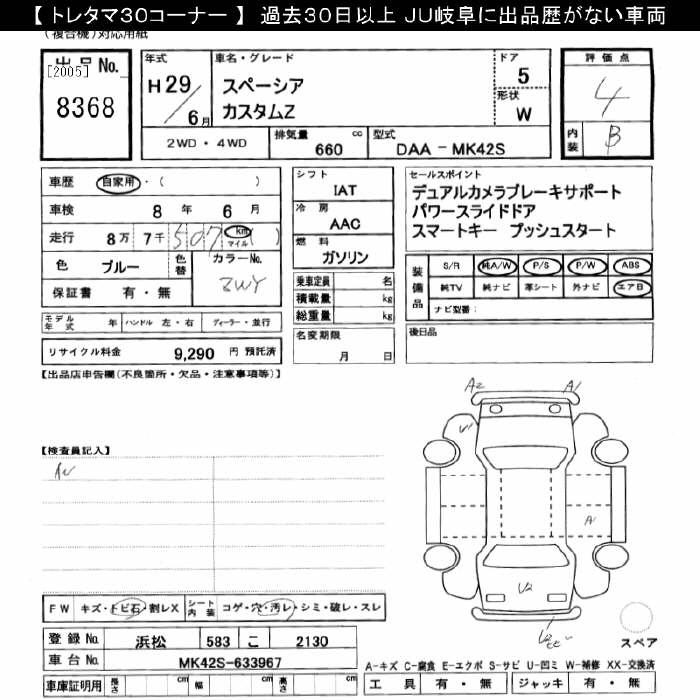 【 トレタマ30コーナー 】 過去30日以上 JU岐阜に出品歴がない車両
(複合機)対応用紙
出品No.
[2005]
8368
年式
H29/6月
車名・グレード
スペーシア
カスタムZ
ドア
5
形状
W
2WD・4WD
排気量 cc
660
型式
DAA-MK42S
評価点
4
内装
B
車歴 自家用・( )
車検 8年 6月
走行 8万 7千 507 km マイル ( )
色 ブルー
色替
カラーNo.
ZWY
保証書 有・無
モデル年式 年 ハンドル 左・右 ディーラー・並行
リサイクル料金 9,290 円 預託済
シフト
IAT
冷房
AAC
燃料
ガソリン
乗車定員 名
積載量 kg
総重量 kg
名変期限
月 日
セールスポイント
デュアルカメラブレーキサポート
パワースライドドア
スマートキー プッシュスタート
装備品
S/R 純A/W P/S P/W ABS
純TV 純ナビ 革シート 外ナビ エアB
ナビ型番:
後日品
【出品店申告欄(不良箇所・欠品・注意事項等)】
【検査員記入】
A2
A1
U1
A
U2
FW キズ・トビ石・割レX
シート内装 コゲ・穴・汚レ・シミ・破レ・スレ
登録No. 浜松 583 こ 2130
車台No. MK42S-633967
車庫証明用 長さ cm 幅 cm 高さ cm
スペア
A-キズ C-腐食 E-エクボ S-サビ U-凹ミ W-補修 XX-交換済
工具 有・無 ジャッキ 有・無